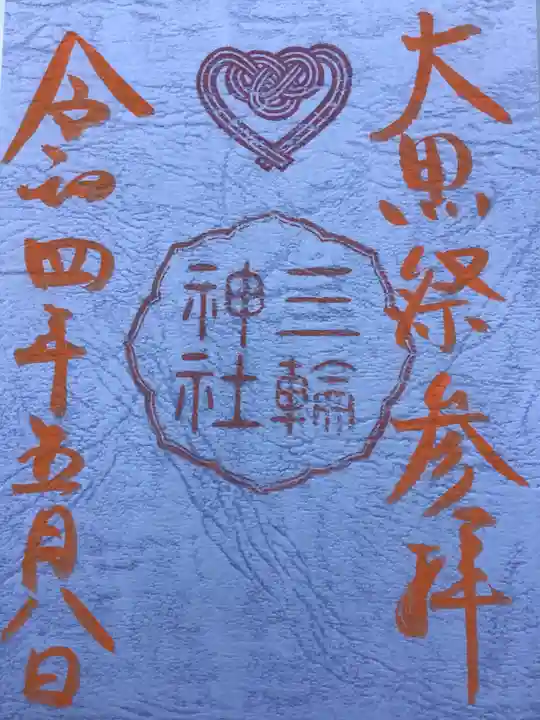 大黒祭参拝
三輪
神社
令和四年五月八日